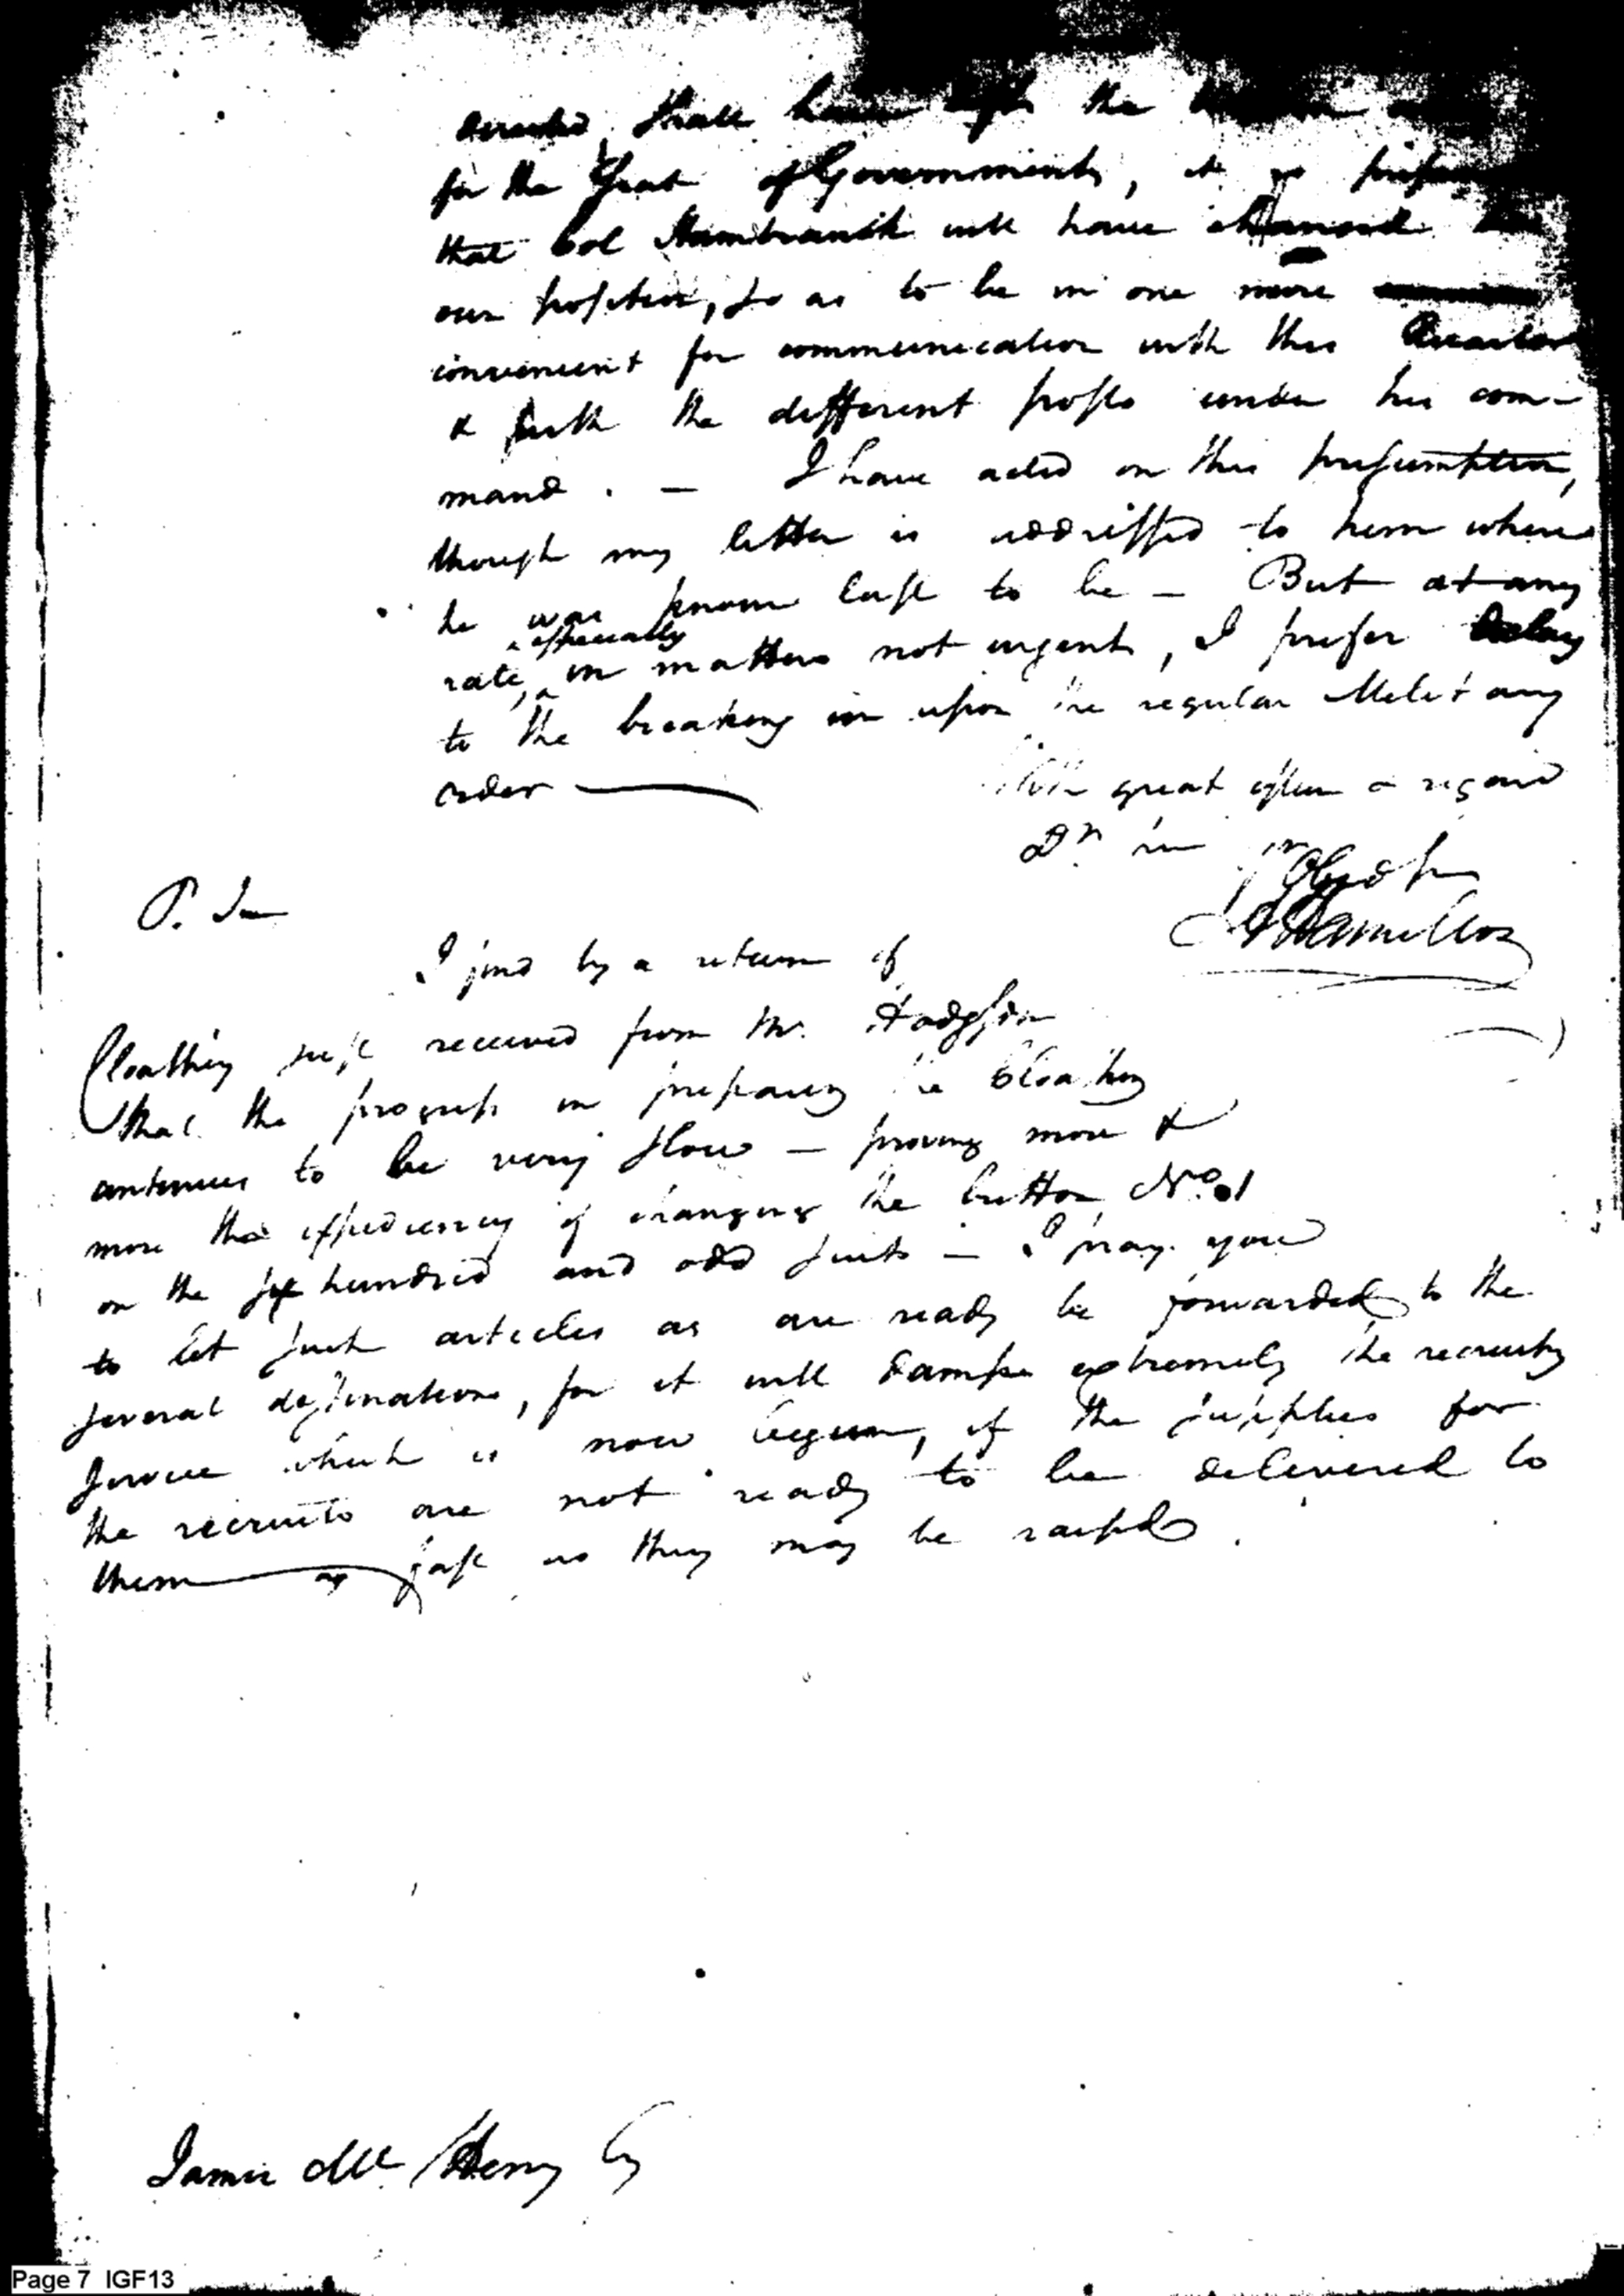 shall have the
for the Seat of Government, it is
that Col Hambranck will have changed
our position, so as to be in one more
convenient for communication with this Quarter
& with the different posts under his com-
mand . — I have acted on this presumption,
though my letter is addressed to him where
he was known last to be — But at any
rate, especially in matters not urgent, I prefer delay
to the breaking in upon the regular Military
order —
With great esteem & regard
Dr Sir yr Obed ser
A Hamilton
P. S
I find by a return of
Cloathing just received from Mr. Hodgsdon
that the progress in preparing the Cloathing
continues to be very slow — proving more &
more the expediency of changing the button No. 1
on the six hundred and odd suits — I pray you
to let such articles as are ready be forwarded to the
several destinations, for it will damp extremely the recruiting
service which is now begun, if the supplies for
the recruits are not ready to be delivered to
them as fast as they may be raised.
James McHenry Esq
Page 7 IGF13